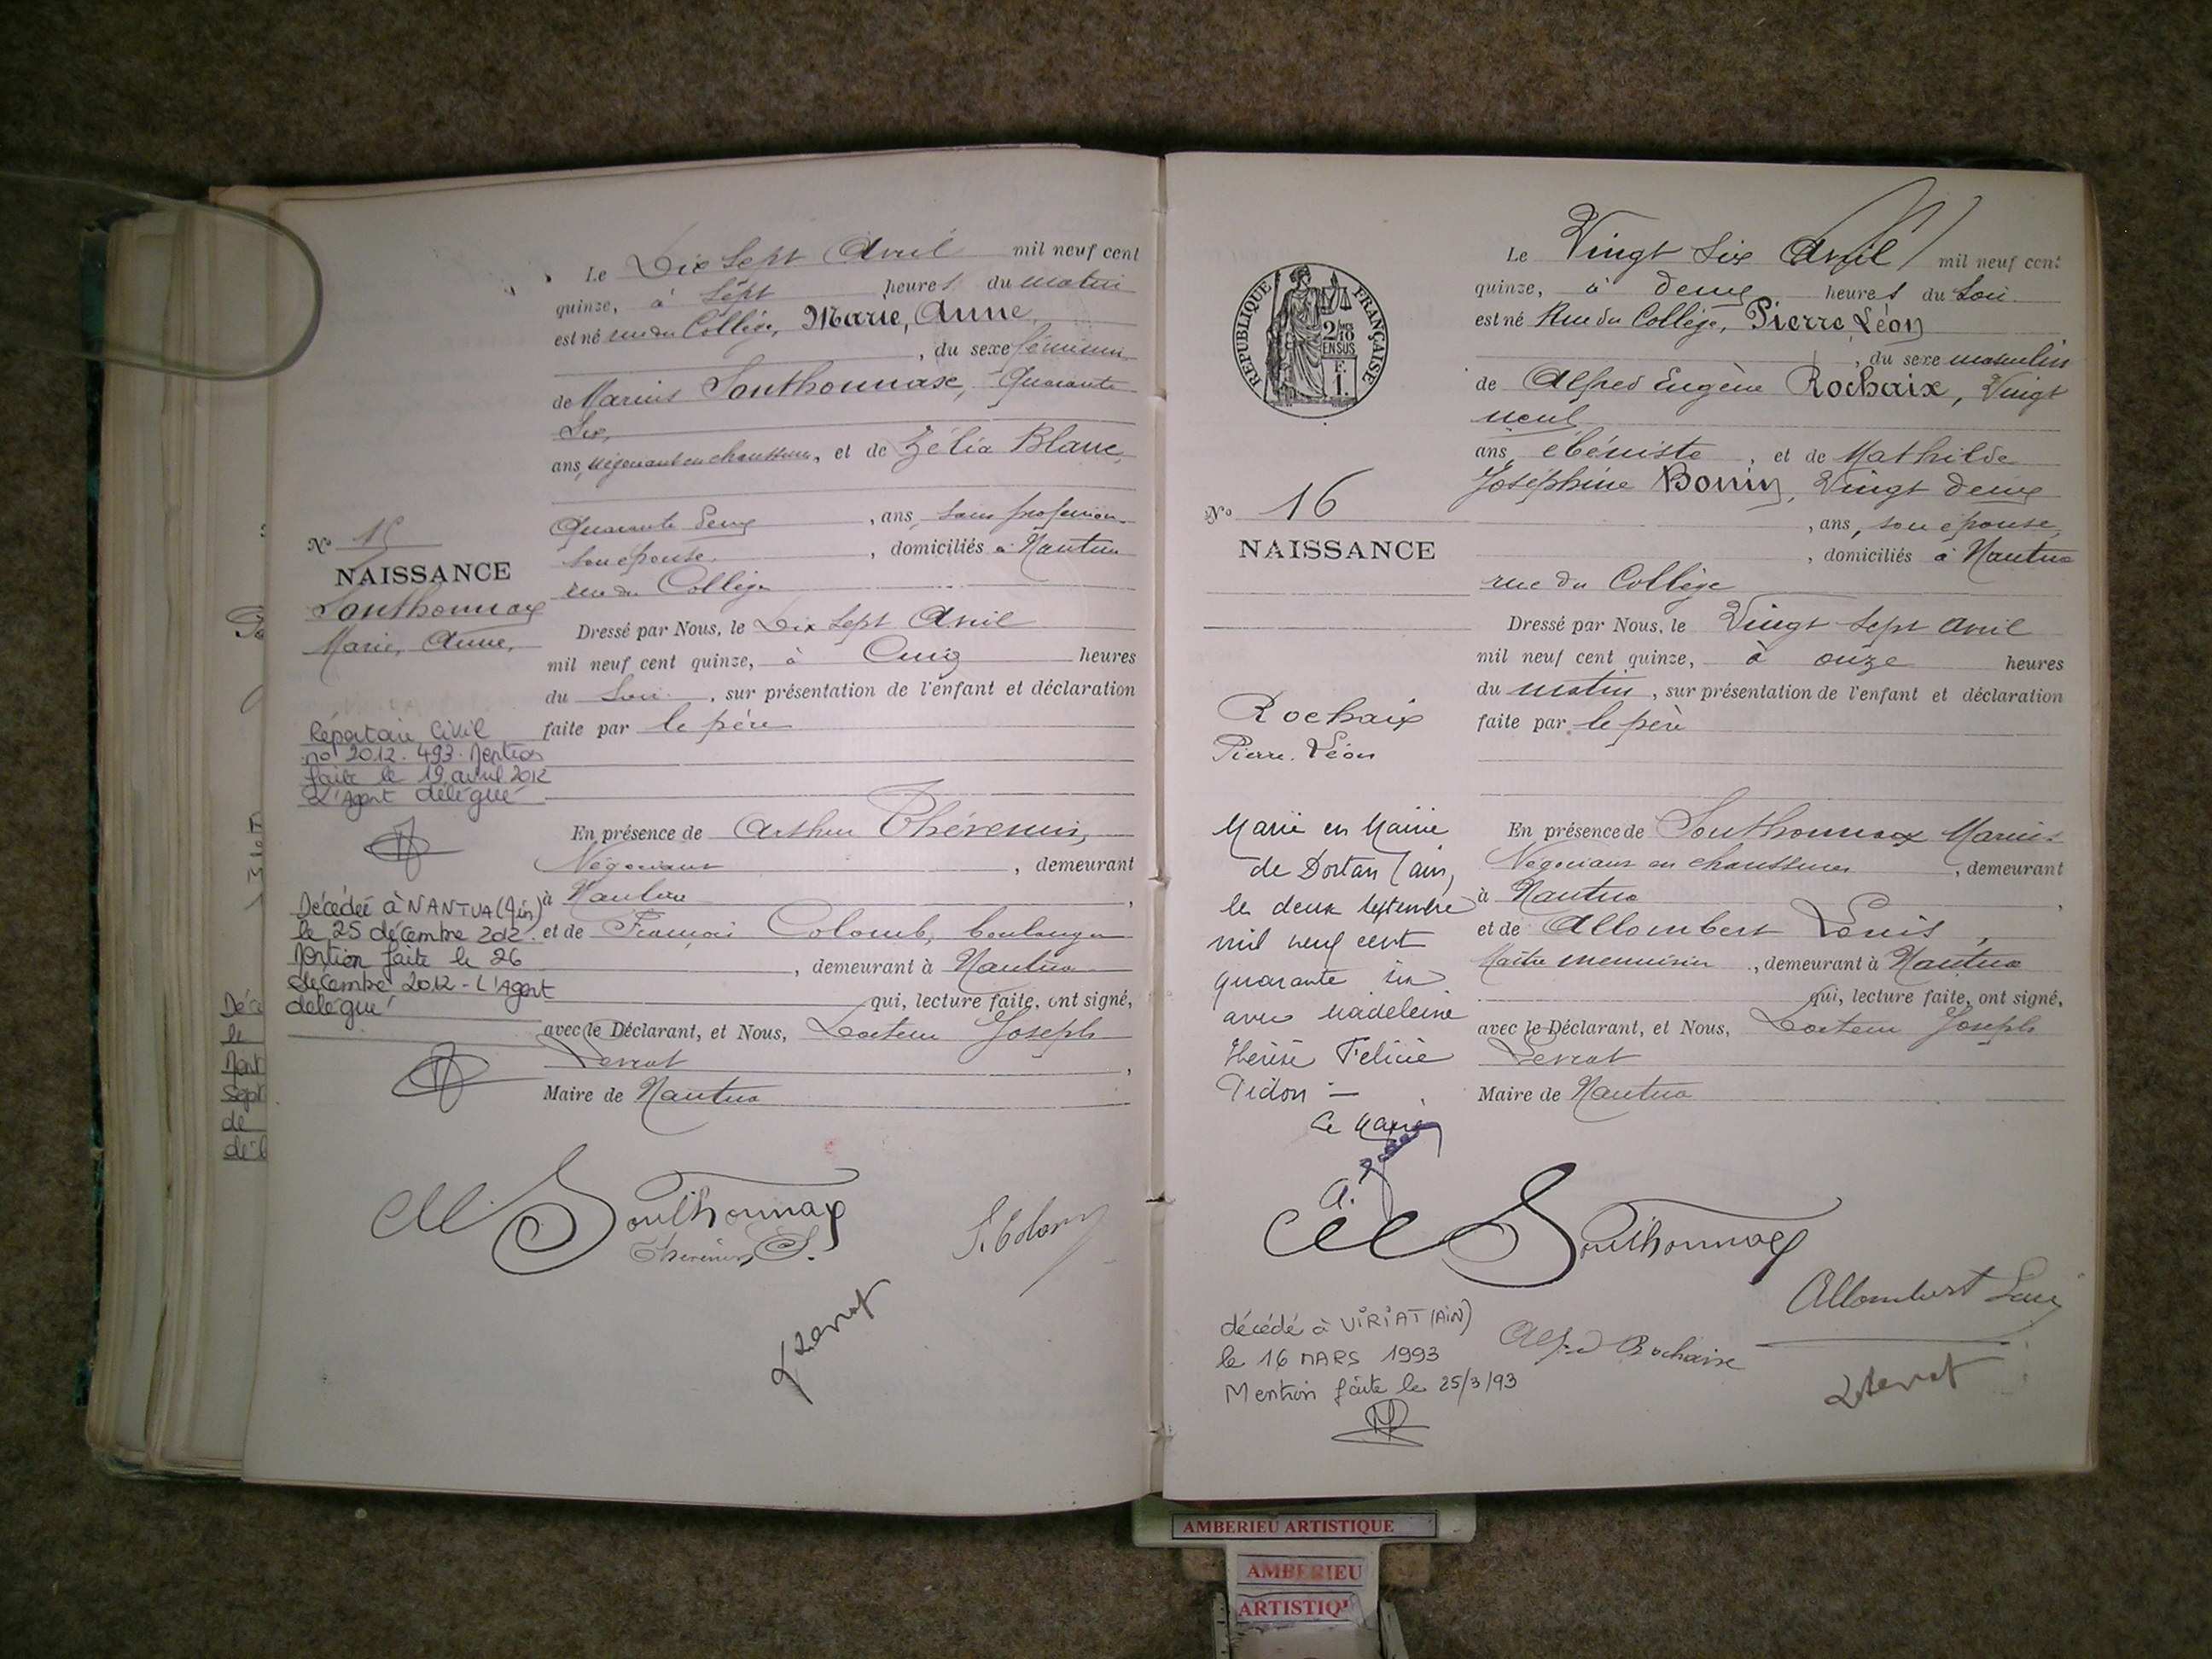 Le Dix Sept Avril mil neuf cent
quinze, à Sept heures du matin
est né rue du Collège, Marie, Anne
, du sexe féminin
de Marius Southonnax, Quarante
Six,
ans, négociant en chaussures, et de Zélia Blanc,
Quarante Deux , ans, sans profession
son épouse, , domiciliés à Nantua
rue du Collège
Dressé par Nous, le Dix Sept Avril
mil neuf cent quinze, à Cinq heures
du Soir , sur présentation de l'enfant et déclaration
faite par le père
En présence de Arthur Thévenin,
Négociant , demeurant
à Nantua ,
et de François Colomb, boulanger
, demeurant à Nantua
qui, lecture faite, ont signé,
avec le Déclarant, et Nous, Docteur Joseph
Levrat ,
Maire de Nantua
No 15
NAISSANCE
Southonnax
Marie, Anne,
Répertoire Civil
no 2012. 493. Mention
faite le 19 avril 2012
L'Agent délégué
Décédée à NANTUA (Ain)
le 25 décembre 2012.
Mention faite le 26
décembre 2012 - L'Agent
délégué
M Southonnax
Thévenin
F. Colomb
J Levrat
Déc
le
Ment
Sept
de
dél
REPUBLIQUE FRANÇAISE
2/10
EN SUS
F.
1.
Le Vingt Six Avril mil neuf cent
quinze, à deux heures du Soir
est né Rue du Collège, Pierre Léon
, du sexe masculin
de Alfred Eugène Rochaix, Vingt
neuf
ans ébéniste , et de Mathilde
Joséphine Bonin, Vingt deux
, ans, son épouse
, domiciliés à Nantua
rue du Collège
Dressé par Nous, le Vingt Sept Avril
mil neuf cent quinze, à onze heures
du matin , sur présentation de l'enfant et déclaration
faite par le père
En présence de Southonnax Marius
Négociant en chaussures , demeurant
à Nantua ,
et de Allombert Louis ,
Maître menuisier , demeurant à Nantua
qui, lecture faite, ont signé,
avec le Déclarant, et Nous, Docteur Joseph
Levrat
Maire de Nantua
No 16
NAISSANCE
Rochaix
Pierre. Léon
Marié en Mairie
de Dortan (ain),
le deux septembre
mil neuf cent
quarante six
avec Madeleine
Thérèse Félicie
Tidon -
Le Maire
M Southonnax
Allombert Louis
Alfred Rochaix
J Levrat
décédé à VIRIAT (AIN)
le 16 MARS 1993
Mention faite le 25/3/93
AMBERIEU ARTISTIQUE
AMBERIEU
ARTISTIQ